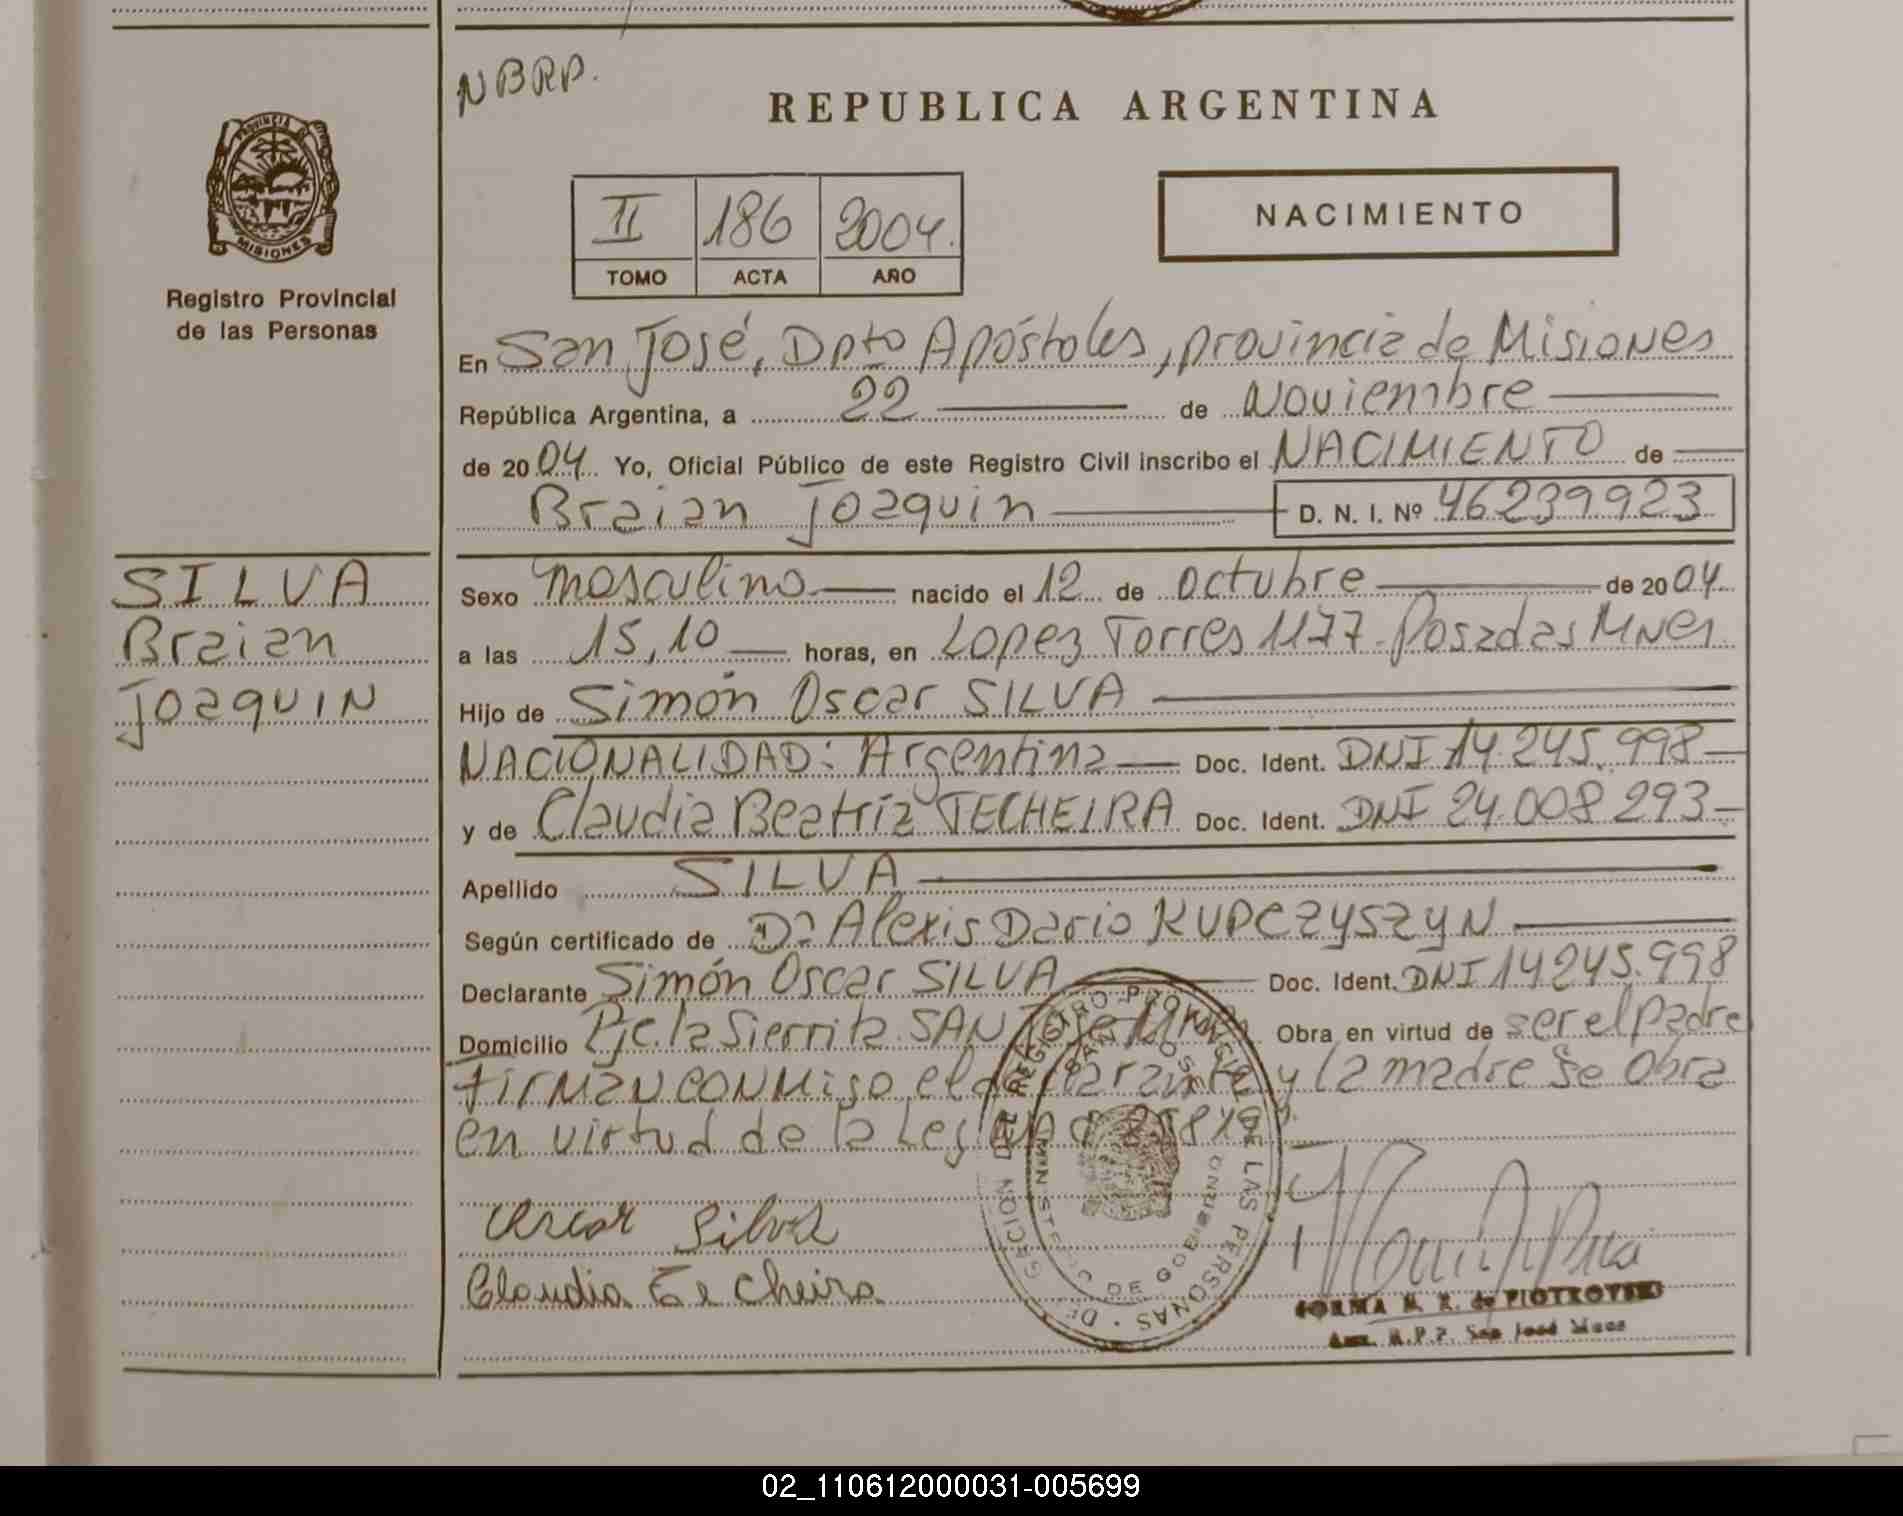 NBRP.
REPUBLICA ARGENTINA
PROVINCIA DE
MISIONES
II 186 2004.
TOMO ACTA AÑO
NACIMIENTO
Registro Provincial
de las Personas
En San José, Dpto Apóstoles, provincia de Misiones
República Argentina, a 22 de Noviembre
de 2004. Yo, Oficial Público de este Registro Civil inscribo el NACIMIENTO de
Braian Joaquin D. N. I. Nº 46239923
SILVA
Braian
Joaquin
Sexo masculino nacido el 12 de octubre de 2004
a las 15,10 horas, en Lopez Torres 1177-Posadas Mnes.
Hijo de Simón Oscar SILVA
NACIONALIDAD: Argentina Doc. Ident. DNI 14.245.998
y de Claudia Beatriz TECHEIRA Doc. Ident. DNI 24.008 293
Apellido SILVA
Según certificado de Dr Alexis Dario KUPCZYSZYN
Declarante Simón Oscar SILVA Doc. Ident. DNI 14245.998
Domicilio Pje. la Sierrita. SAN José Obra en virtud de ser el padre
firman conmigo el declarante y la madre se obra
en virtud de la Ley
Oscar Silva
Claudia Techeira
REGISTRO PROVINCIAL DE LAS PERSONAS
SAN JOSE
MINISTERIO DE GOBIERNO
NORMA N. R. de PIOTROVSKI
Aux. R.P.P. San José Mnes
02_110612000031-005699